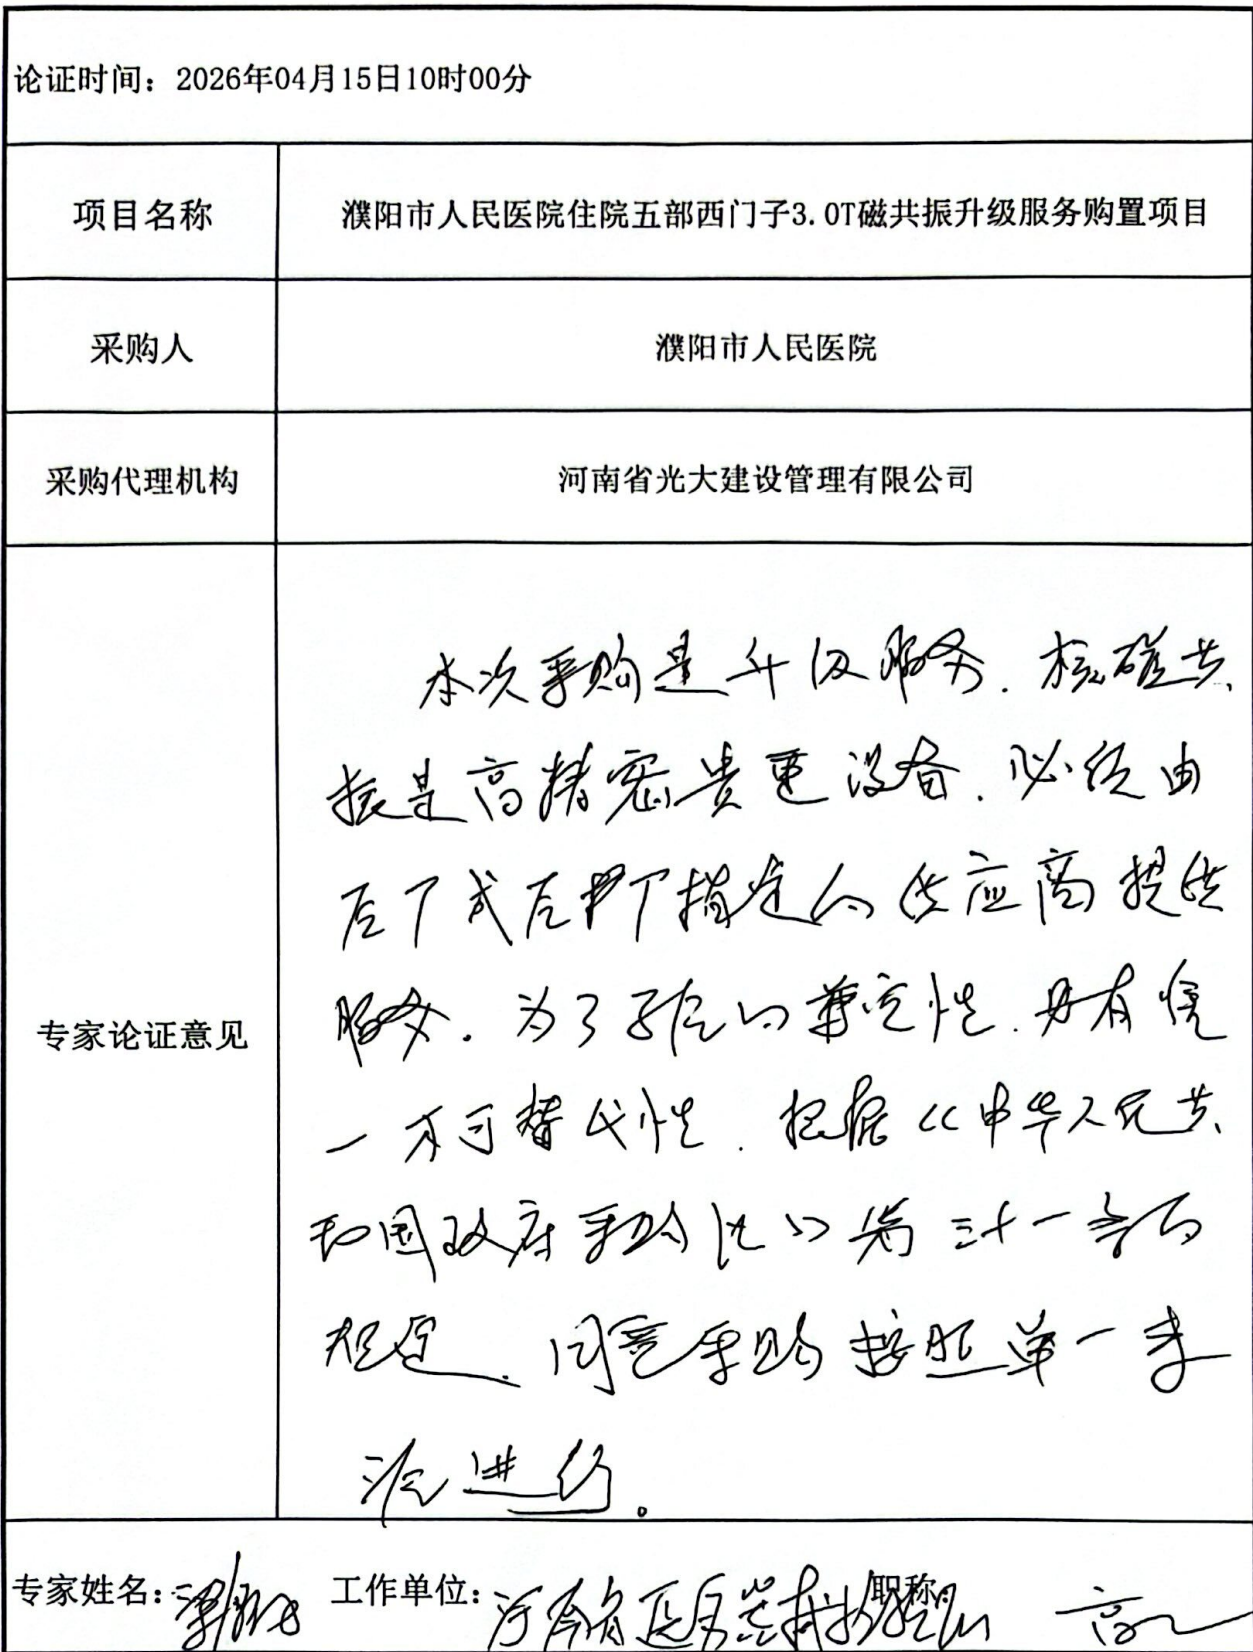 论证时间：2026年04月15日10时00分
项目名称
濮阳市人民医院住院五部西门子3.0T磁共振升级服务购置项目
采购人
濮阳市人民医院
采购代理机构
河南省光大建设管理有限公司
专家论证意见
本次采购是升级服务.核磁共
振是高精密贵重设备.必须由
原厂或原厂指定的供应商提供
服务.为了系统的兼容性.具有唯
一不可替代性.根据《中华人民共
和国政府采购法》第三十一条的
规定.同意采购按照单一来
源进行。
专家姓名： 工作单位：河南省 职称 高工